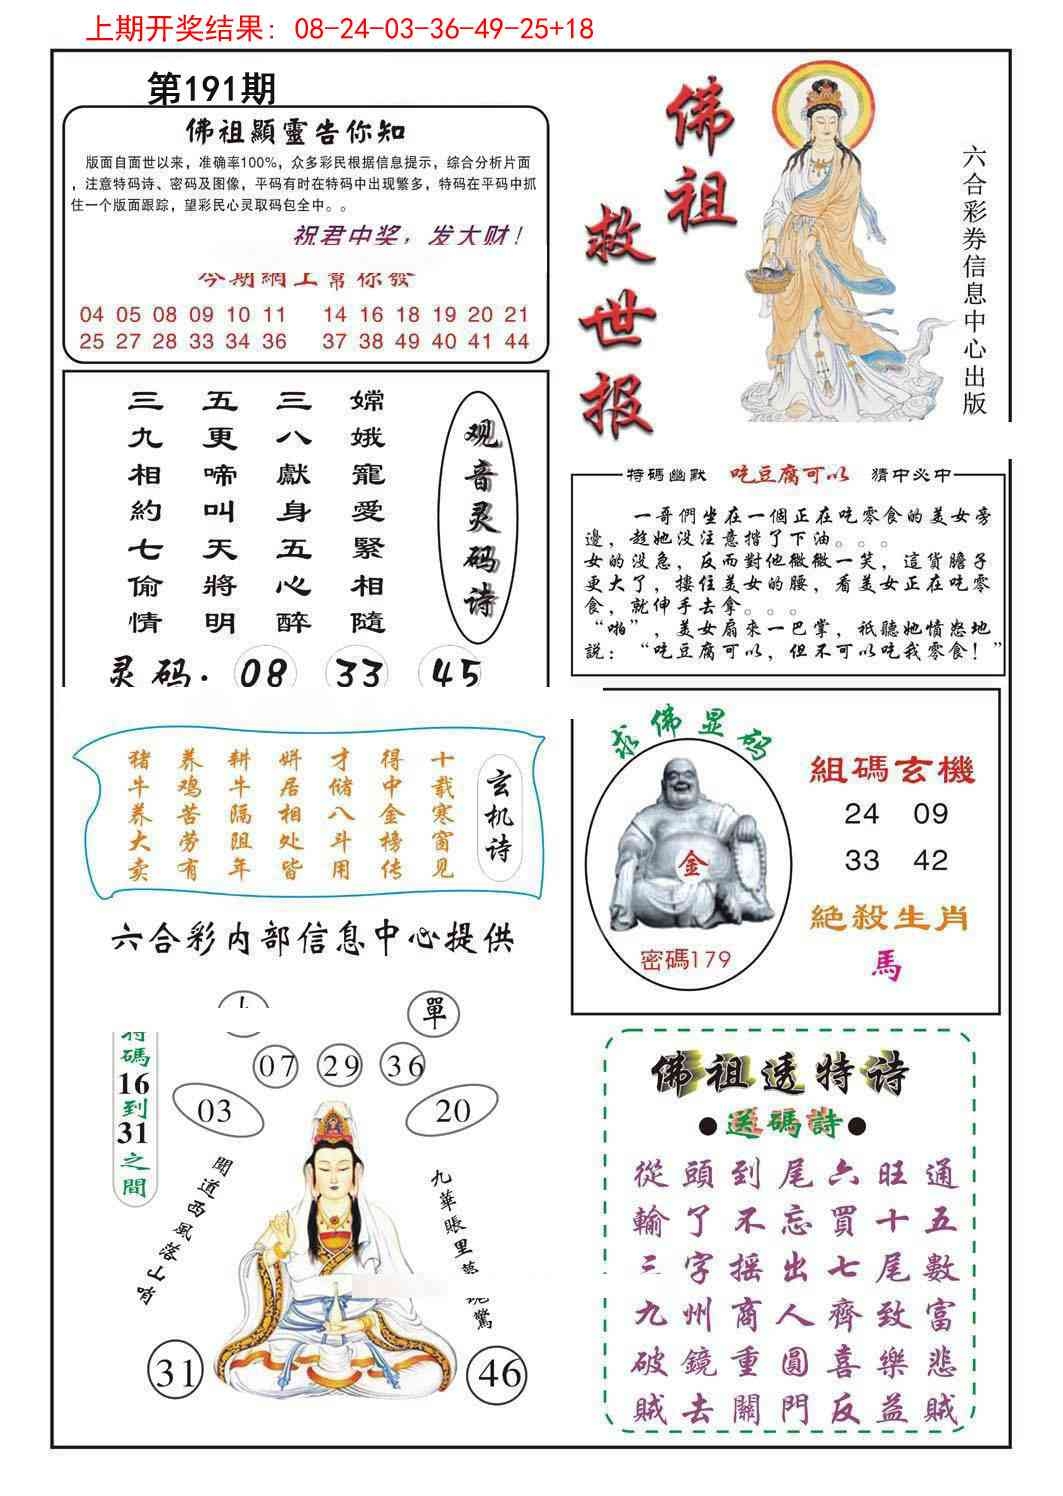 上期开奖结果: 08-24-03-36-49-25+18
第191期
佛祖顯靈告你知
版面自面世以来，准确率100%，众多彩民根据信息提示，综合分析片面
，注意特码诗、密码及图像，平码有时在特码中出现繁多，特码在平码中抓
住一个版面跟踪，望彩民心灵取码包全中。。
祝君中奖，发大财！
今期網上幫你發
04 05 08 09 10 11 14 16 18 19 20 21
25 27 28 33 34 36 37 38 49 40 41 44
佛祖
救世报
六合彩券信息中心出版
观音灵码诗
嫦娥寵愛緊相隨
三八獻身五心醉
五更啼叫天將明
三九相約七偷情
灵码: 08 33 45
特碼幽默 吃豆腐可以 猜中必中
一哥們坐在一個正在吃零食的美女旁
邊，趁她没注意揩了下油。。。
女的没急，反而對他微微一笑，這貨膽子
更大了，摟住美女的腰，看美女正在吃零
食，就伸手去拿。。。
“啪”，美女扇來一巴掌，祇聽她憤怒地
説：“吃豆腐可以，但不可以吃我零食！”
玄机诗
十载寒窗见
得中金榜传
才储八斗用
姘居相处皆
耕牛隔阻年
养鸡苦劳有
猪牛养大卖
六合彩内部信息中心提供
求佛显码
金
密碼179
組碼玄機
24 09
33 42
絕殺生肖
馬
單
07 29 36
03 20
特碼16到31之間
聞道西風落山哨
九華賬里
驚
31 46
佛祖透特诗
●送碼詩●
從頭到尾六旺通
輸了不忘買十五
三字摇出七尾數
九州商人齊致富
破鏡重圓喜樂悲
賊去關門反益賊